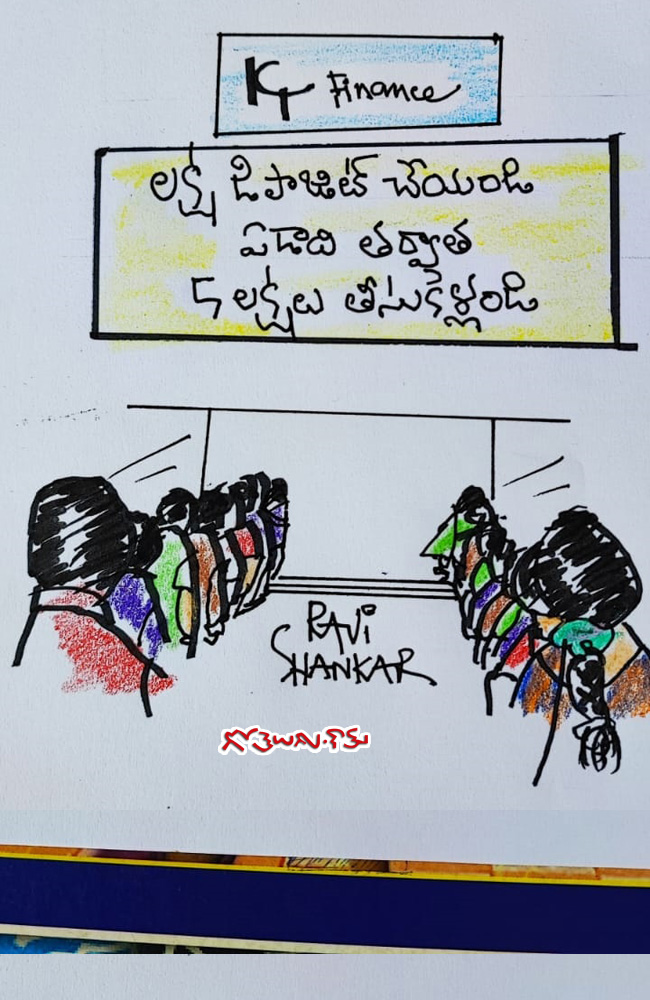 KT Finance
లక్ష డిపాజిట్ చేయండి
ఏడాది తర్వాత
5 లక్షలు తీసుకెళ్లండి
RAVi
SHANKAR
గోతెలుగు.కామ్